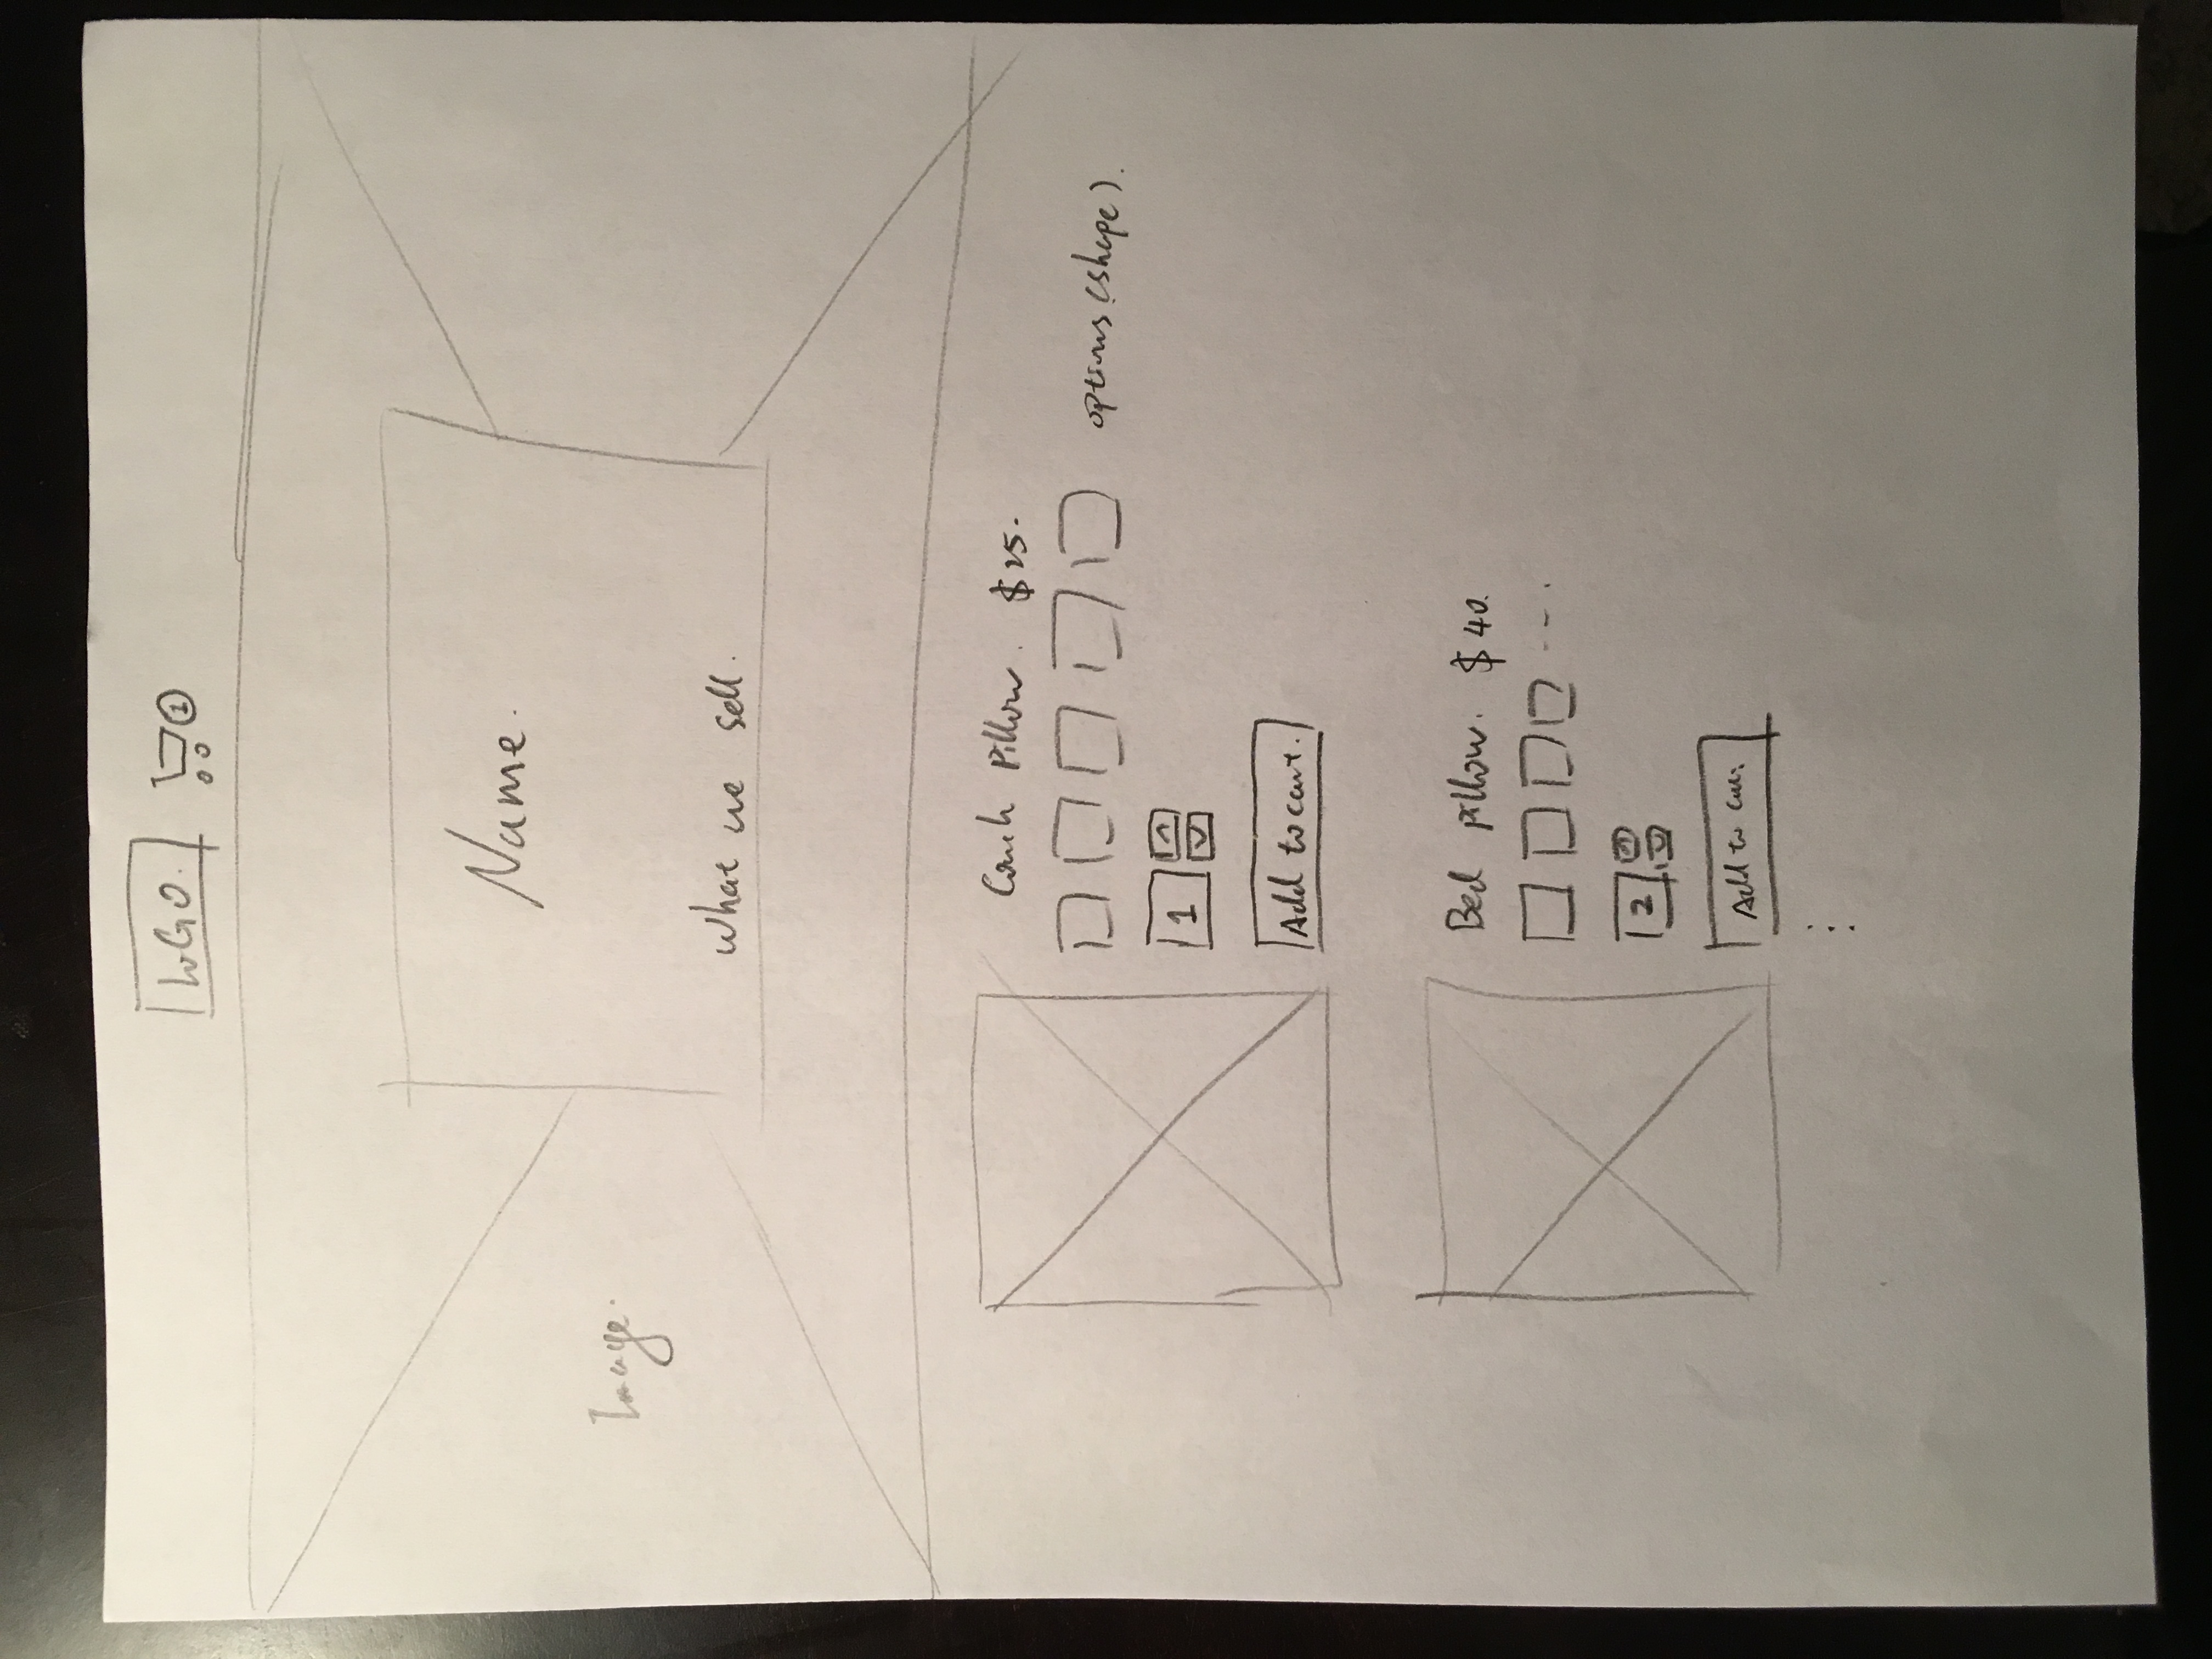 LOGO. 1
Name.
Image.
what we sell.
Couch Pillow. $25.
options (shape).
1
Add to cart.
Bed pillow. $40.
2
Add to car.